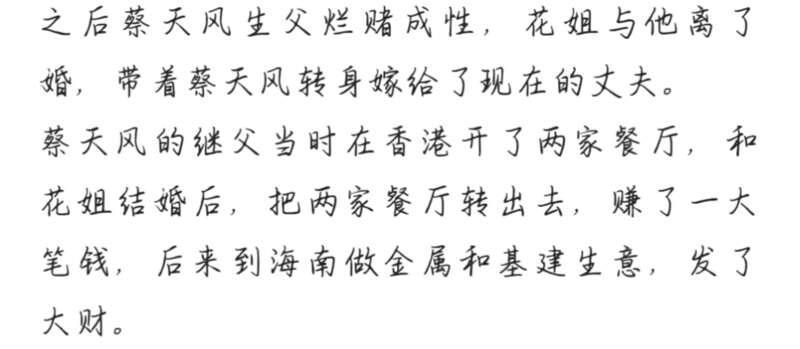 之后蔡天风生父烂赌成性，花姐与他离了
婚，带着蔡天风转身嫁给了现在的丈夫。
蔡天风的继父当时在香港开了两家餐厅，和
花姐结婚后，把两家餐厅转出去，赚了一大
笔钱，后来到海南做金属和基建生意，发了
大财。